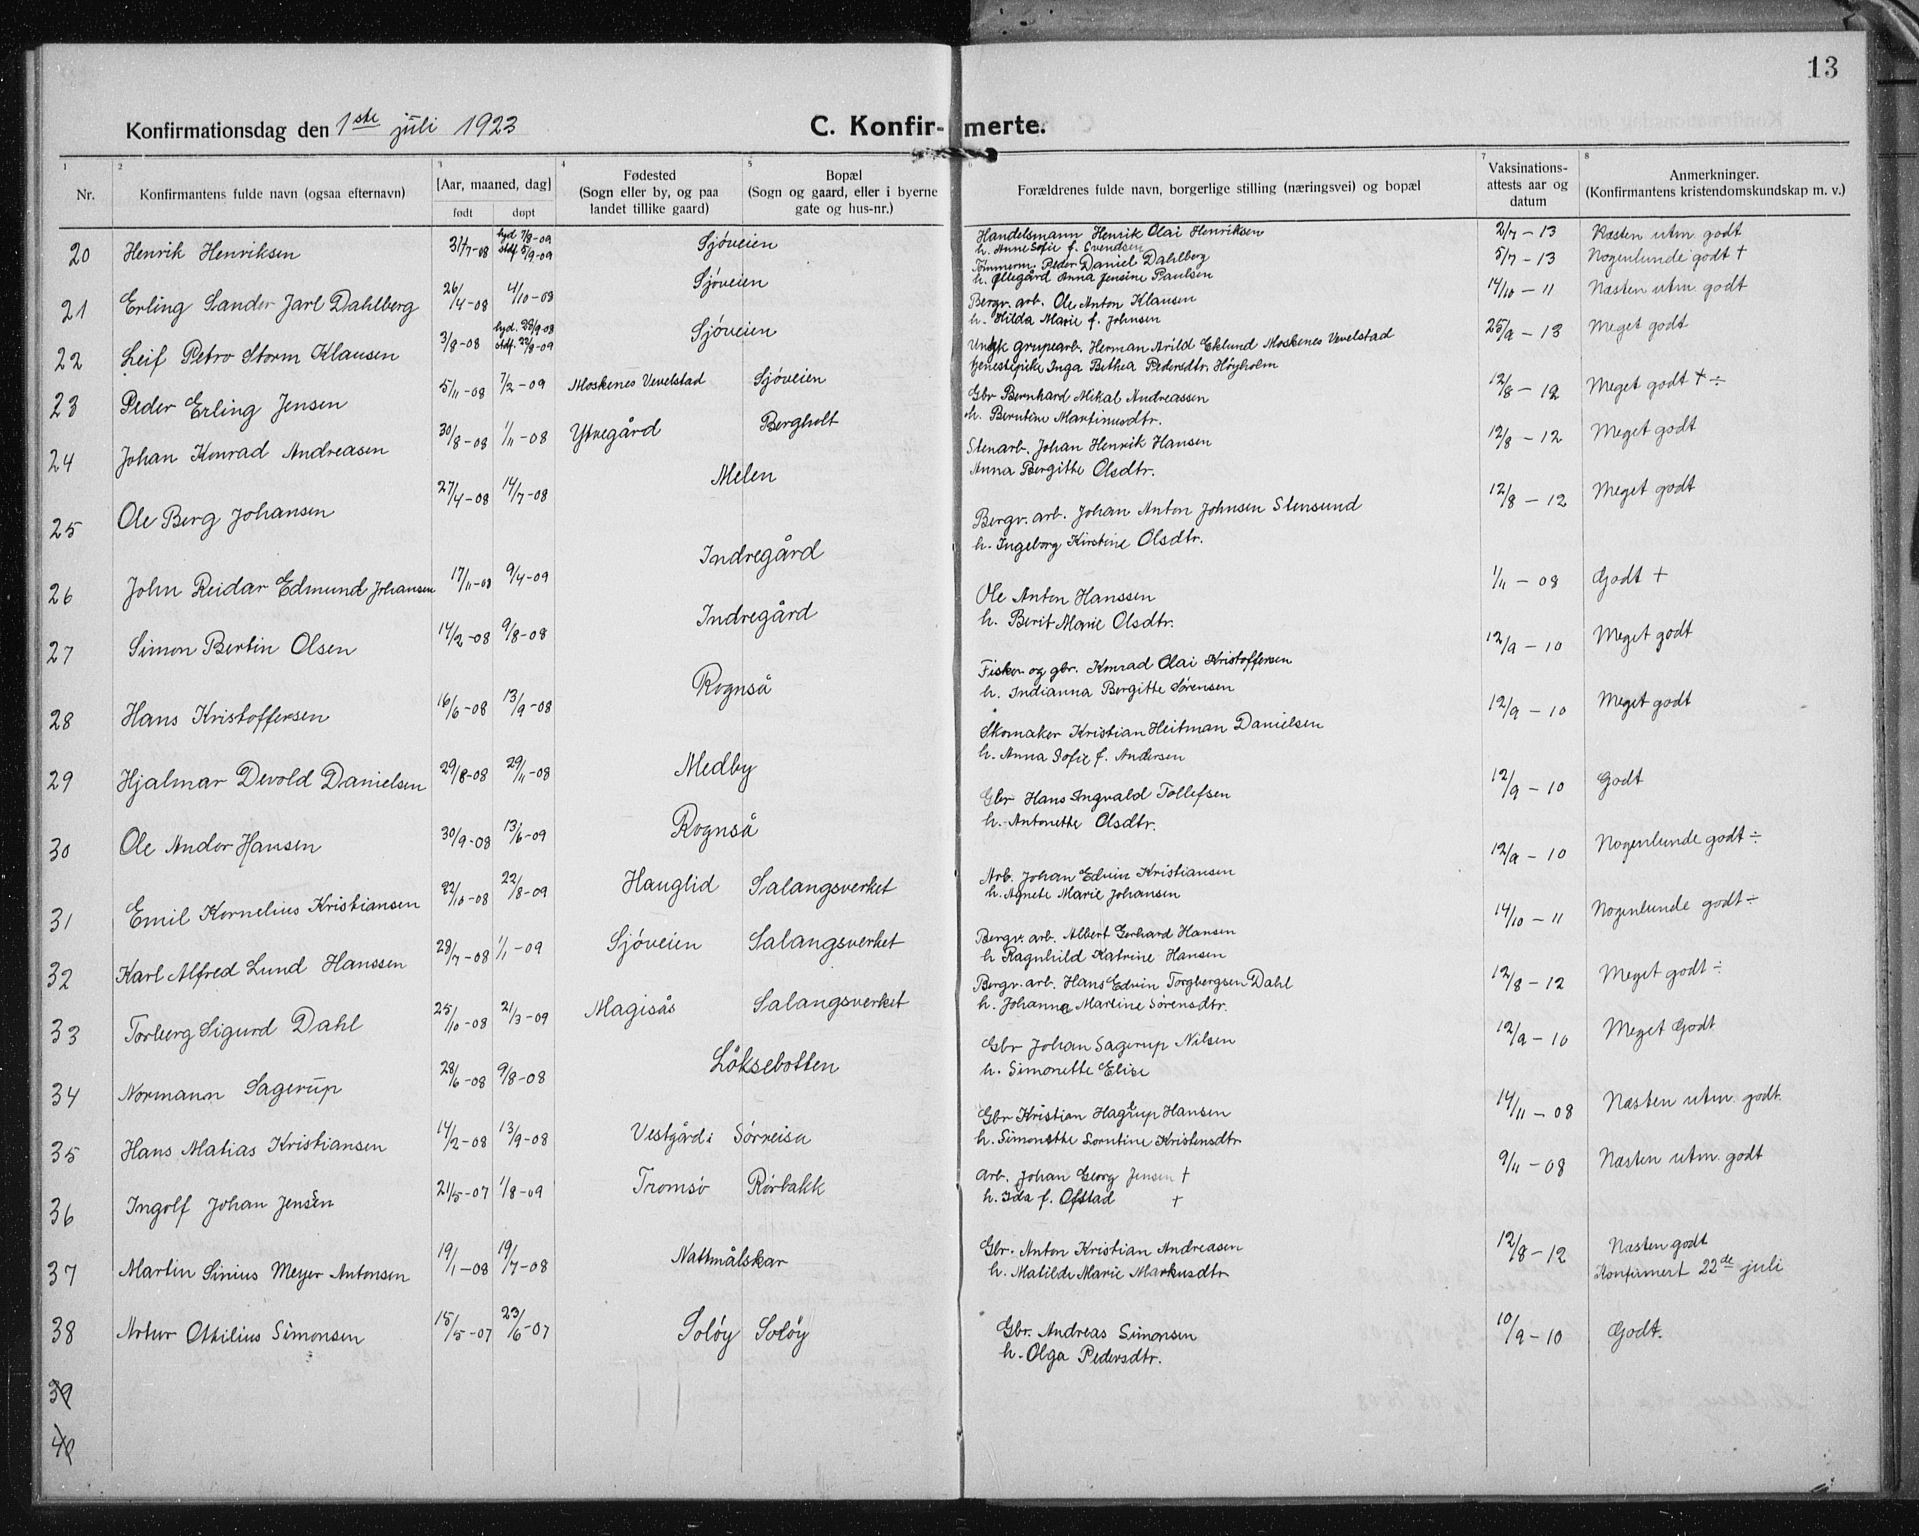 13
Konfirmationsdag den 1ste juli 1923 C. Konfir-merte.
1 2 3 4 5 7 8
Nr. Konfirmantens fulde navn (ogsaa efternavn) [Aar, maaned, dag] født døpt Fødested (Sogn eller by, og paa landet tillike gaard) Bopæl (Sogn og gaard, eller i byerne gate og hus-nr.) Forældrenes fulde navn, borgerlige stilling (næringsvei) og bopæl Vaksinations-attests aar og datum Anmerkninger. (Konfirmantens kristendomskundskap m. v.)
20 Henrik Henriksen 31/7-08 hjd 7/8-09 stdf. 5/9-09 Sjøveien Handelsmann Henrik Olai Henriksen 2/7 - 13 Næsten utm. godt
h. Anne Sofie f. Svendsen
21 Erling Sander Jarl Dahlberg 26/4-08 4/10-08 Sjøveien Tømmerm. Peder Daniel Dahlberg 5/7 - 13 Nogenlunde godt +
h. Ollegård Anna Jensine Paulsen
22 Leif Petro Storm Klausen 3/8-08 hjd. 23/9-08 stdf. 22/8-09 Sjøveien Bergv. arb. Ole Anton Klausen 14/10 - 11 Næsten utm. godt
h. Hilda Marie f. Johnsen
23 Peder Erling Jensen 5/11-08 7/2-09 Moskenes Vevelstad Sjøveien Ungk grupearb. Herman Arild Eklund Moskenes Vevelstad 25/9 - 13 Meget godt
tjenestepike Inga Bethea Pedersdtr. Høyholm
24 Johan Konrad Andreasen 30/8-08 1/11-08 Ytregård Bergholt Gbr Bernhard Mikal Andreassen 12/8 - 12 Meget godt + ÷
h. Berntine Martinusdtr.
25 Ole Berg Johansen 27/4-08 14/7-08 Melen Stenarb. Johan Henrik Hansen 12/8 - 12 Meget godt
Anna Bergitte Olsdtr.
26 John Reidar Edmund Johansen 17/11-08 9/4-09 Indregård Bergv. arb. Johan Anton Johnsen Stensund 12/8 - 12 Meget godt
h. Ingeborg Kirstine Olsdtr.
27 Simon Bertin Olsen 14/2-08 9/8-08 Indregård Ole Anton Hanssen 1/11 - 08 Godt +
h. Berit Marie Olsdtr.
28 Hans Kristoffersen 16/6-08 13/9-08 Rognså Fisker og gbr. Konrad Olai Kristoffersen 12/9 - 10 Meget godt
h. Indianna Bergitte Sørensen
29 Hjalmar Devold Danielsen 29/8-08 29/11-08 Medby Skomaker Kristian Heitman Danielsen 12/9 - 10 Meget godt
h. Anna Sofie f. Andersen
30 Ole Andor Hansen 30/9-08 13/6-09 Rognså Gbr Hans Ingvald Tollefsen 12/9 - 10 Godt
h. Antonette Olsdtr.
31 Emil Kornelius Kristiansen 22/10-08 22/8-09 Hauglid Salangsverket Arb. Johan Edvin Kristiansen 12/9 - 10 Nogenlunde godt ÷
h. Agnete Marie Johansen
32 Karl Alfred Lund Hanssen 23/7-08 1/1-09 Sjøveien Salangsverket Bergv. arb. Albert Gerhard Hansen 14/10 - 11 Nogenlunde godt ÷
h Ragnhild Katrine Hansen
33 Torberg Sigurd Dahl 25/10-08 21/3-09 Magisås Salangsverket Bergv. arb. Hans Edvin Torgbergsen Dahl 12/8 - 12 Meget godt ÷
h. Johanna Martine Sørensdtr.
34 Normann Sagerup 28/6-08 9/8-08 Løksebotten Gbr Johan Sagerup Nilsen 12/9 - 10 Meget Godt
h. Simonette Elise
35 Hans Matias Kristiansen 14/2-08 13/9-08 Vestgård i Sørreisa Gbr Kristian Hagerup Hansen 14/11 - 08 Næsten utm. godt.
h. Simonette Lorntine Kristensdtr
36 Ingolf Johan Jensen 21/5-07 1/8-09 Tromsø Rørbakk Arb. Johan Georg Jensen + 9/11 - 08 Næsten utm. godt
h. Ida f. Ofstad +
37 Martin Sinius Meyer Antonsen 19/1-08 19/7-08 Nattmålskar Gbr. Anton Kristian Andreasen 12/8 - 12 Næsten godt
h. Matilde Marie Markusdtr Konfirmert 22de juli
38 Artur Ottilius Simonsen 15/5-07 23/6-07 Soløy Soløy Gbr. Andreas Simonsen 10/9 - 10 Godt.
h. Olga Pedersdtr.
39
40